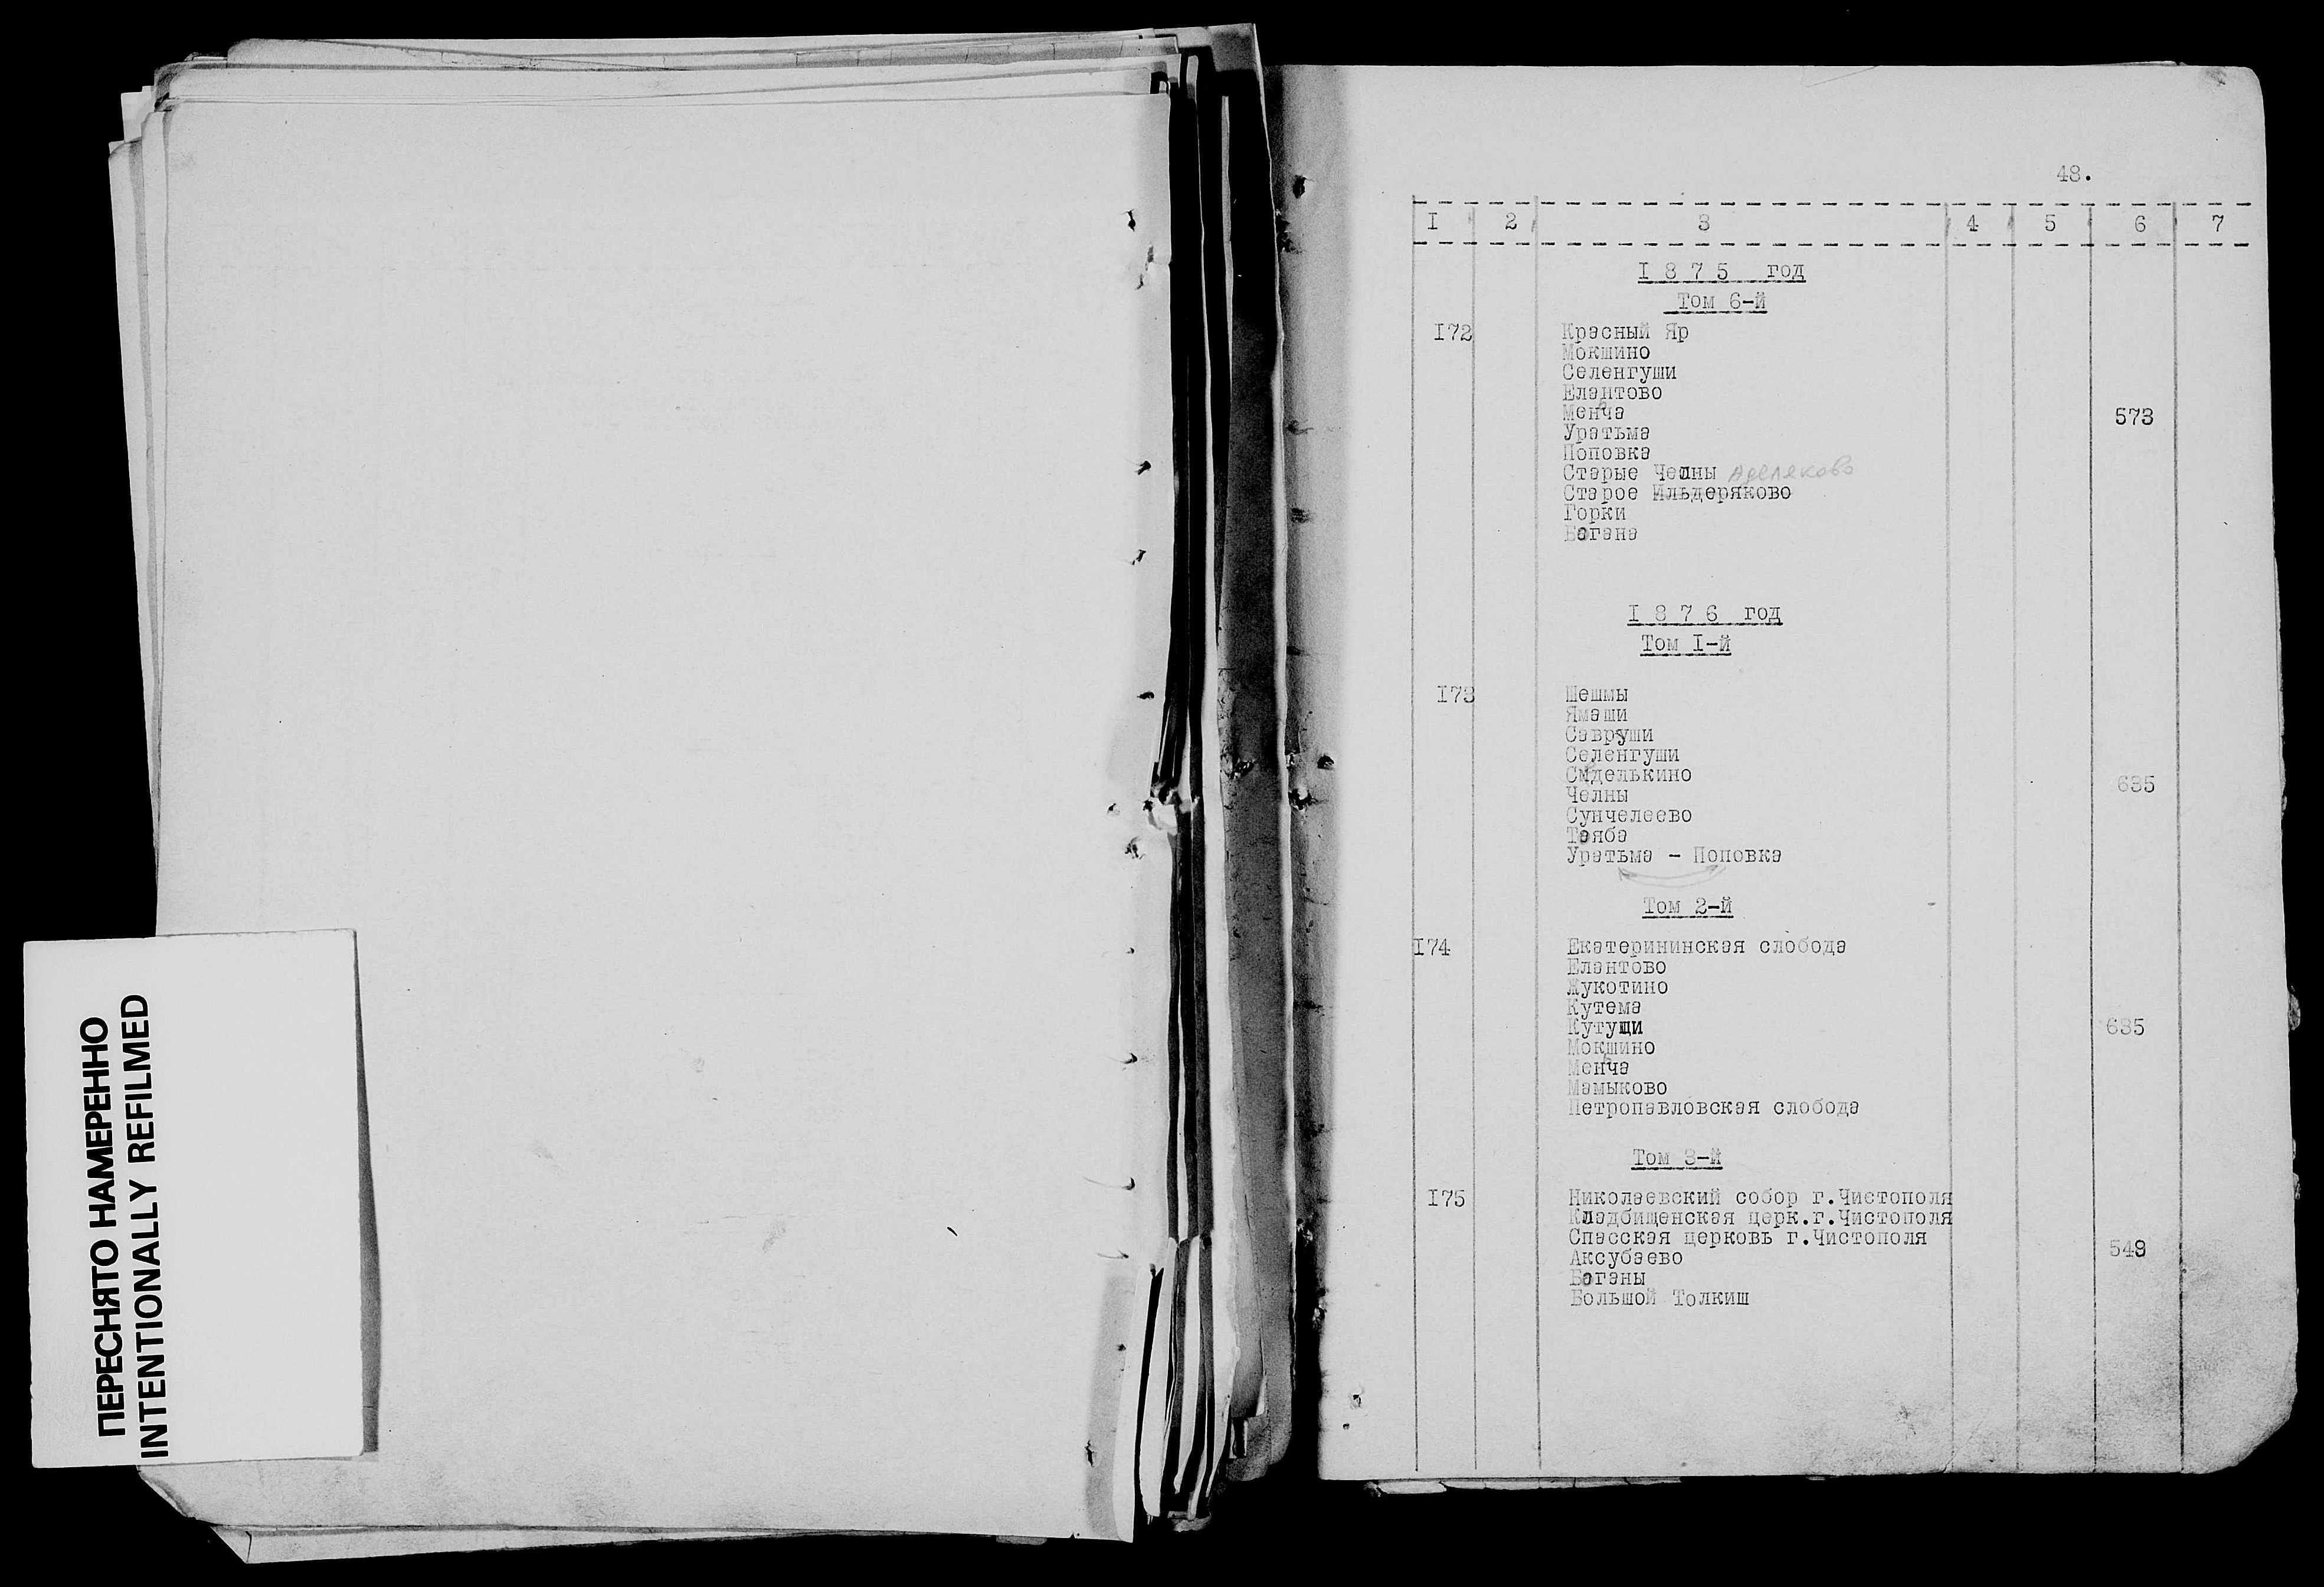 ПЕРЕСНЯТО НАМЕРЕННО
INTENTIONALLY REFILMED
48.
I 2 3 4 5 6 7
I 8 7 5 год
Том 6-й
I72 Красный Яр
Мокшино
Селенгуши
Елантово
Менча 573
Уратьма
Поповка
Старые Челны Аделяково
Старое Ильдеряково
Горки
Багана
I 8 7 6 год
Том I-й
I73 Шешмы
Ямаши
Савруши
Селенгуши
Сиделькино 635
Челны
Сунчелеево
Таяба
Уратьма - Поповка
Том 2-й
I74 Екатерининская слобода
Елантово
Жукотино
Кутема
Кутуши 635
Мокшино
Менча
Мамыково
Петропавловская слобода
Том 3-й
I75 Николаевский собор г.Чистополя
Кладбищенская церк.г.Чистополя
Спасская церковь г.Чистополя
Аксубаево 549
Баганы
Большой Толкиш